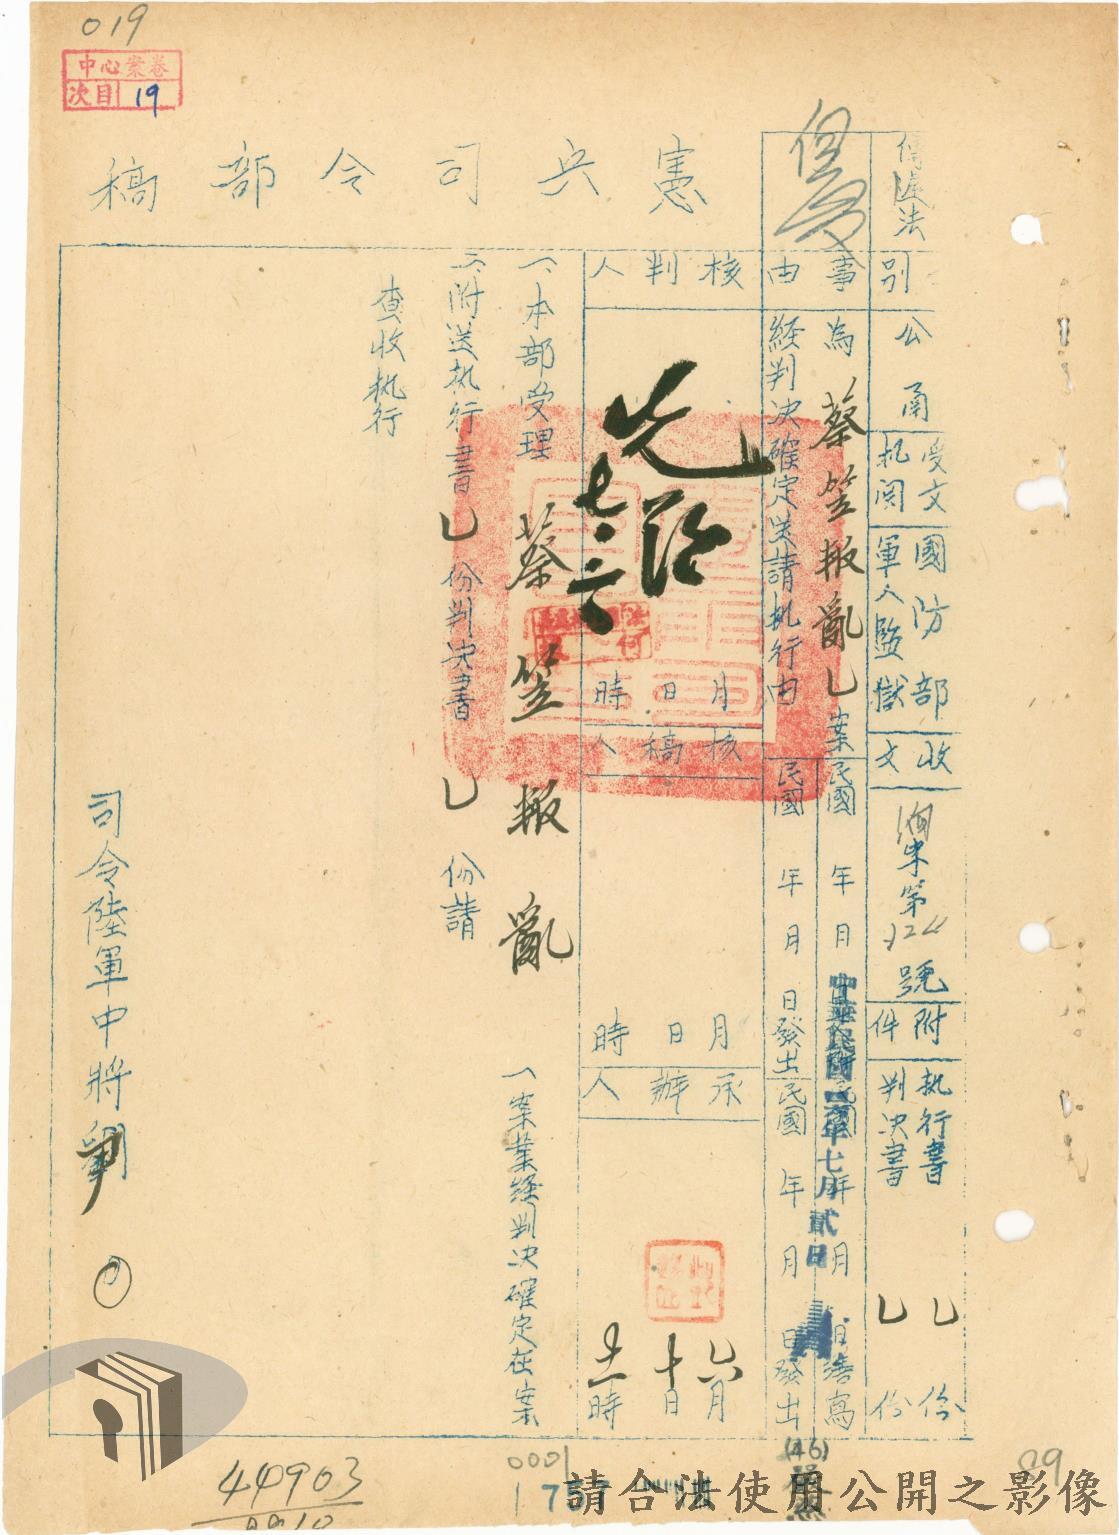 019
中心案卷
次目 19
憲兵司令部稿
傳遞法
別 公函
受文機関 國防部軍人監獄
收文 字第 號
附件 执行書 判決書 乙份 乙份
事由 為蔡笠叛亂乙案
経判決確定送請执行由
民國 年 月 日繕寫
民國 年 月 日發出
中華民國 年七月貳日
核判人 月 日 時
核稿人 月 日 時
承辦人 六月 十日 時
七.六
一、本部受理 蔡笠叛亂 一案業経判決確定在案
二、附送执行書乙份判決書乙份請
查收执行
司令陸軍中將劉
(46)
0001
44903
89
請合法使用公開之影像